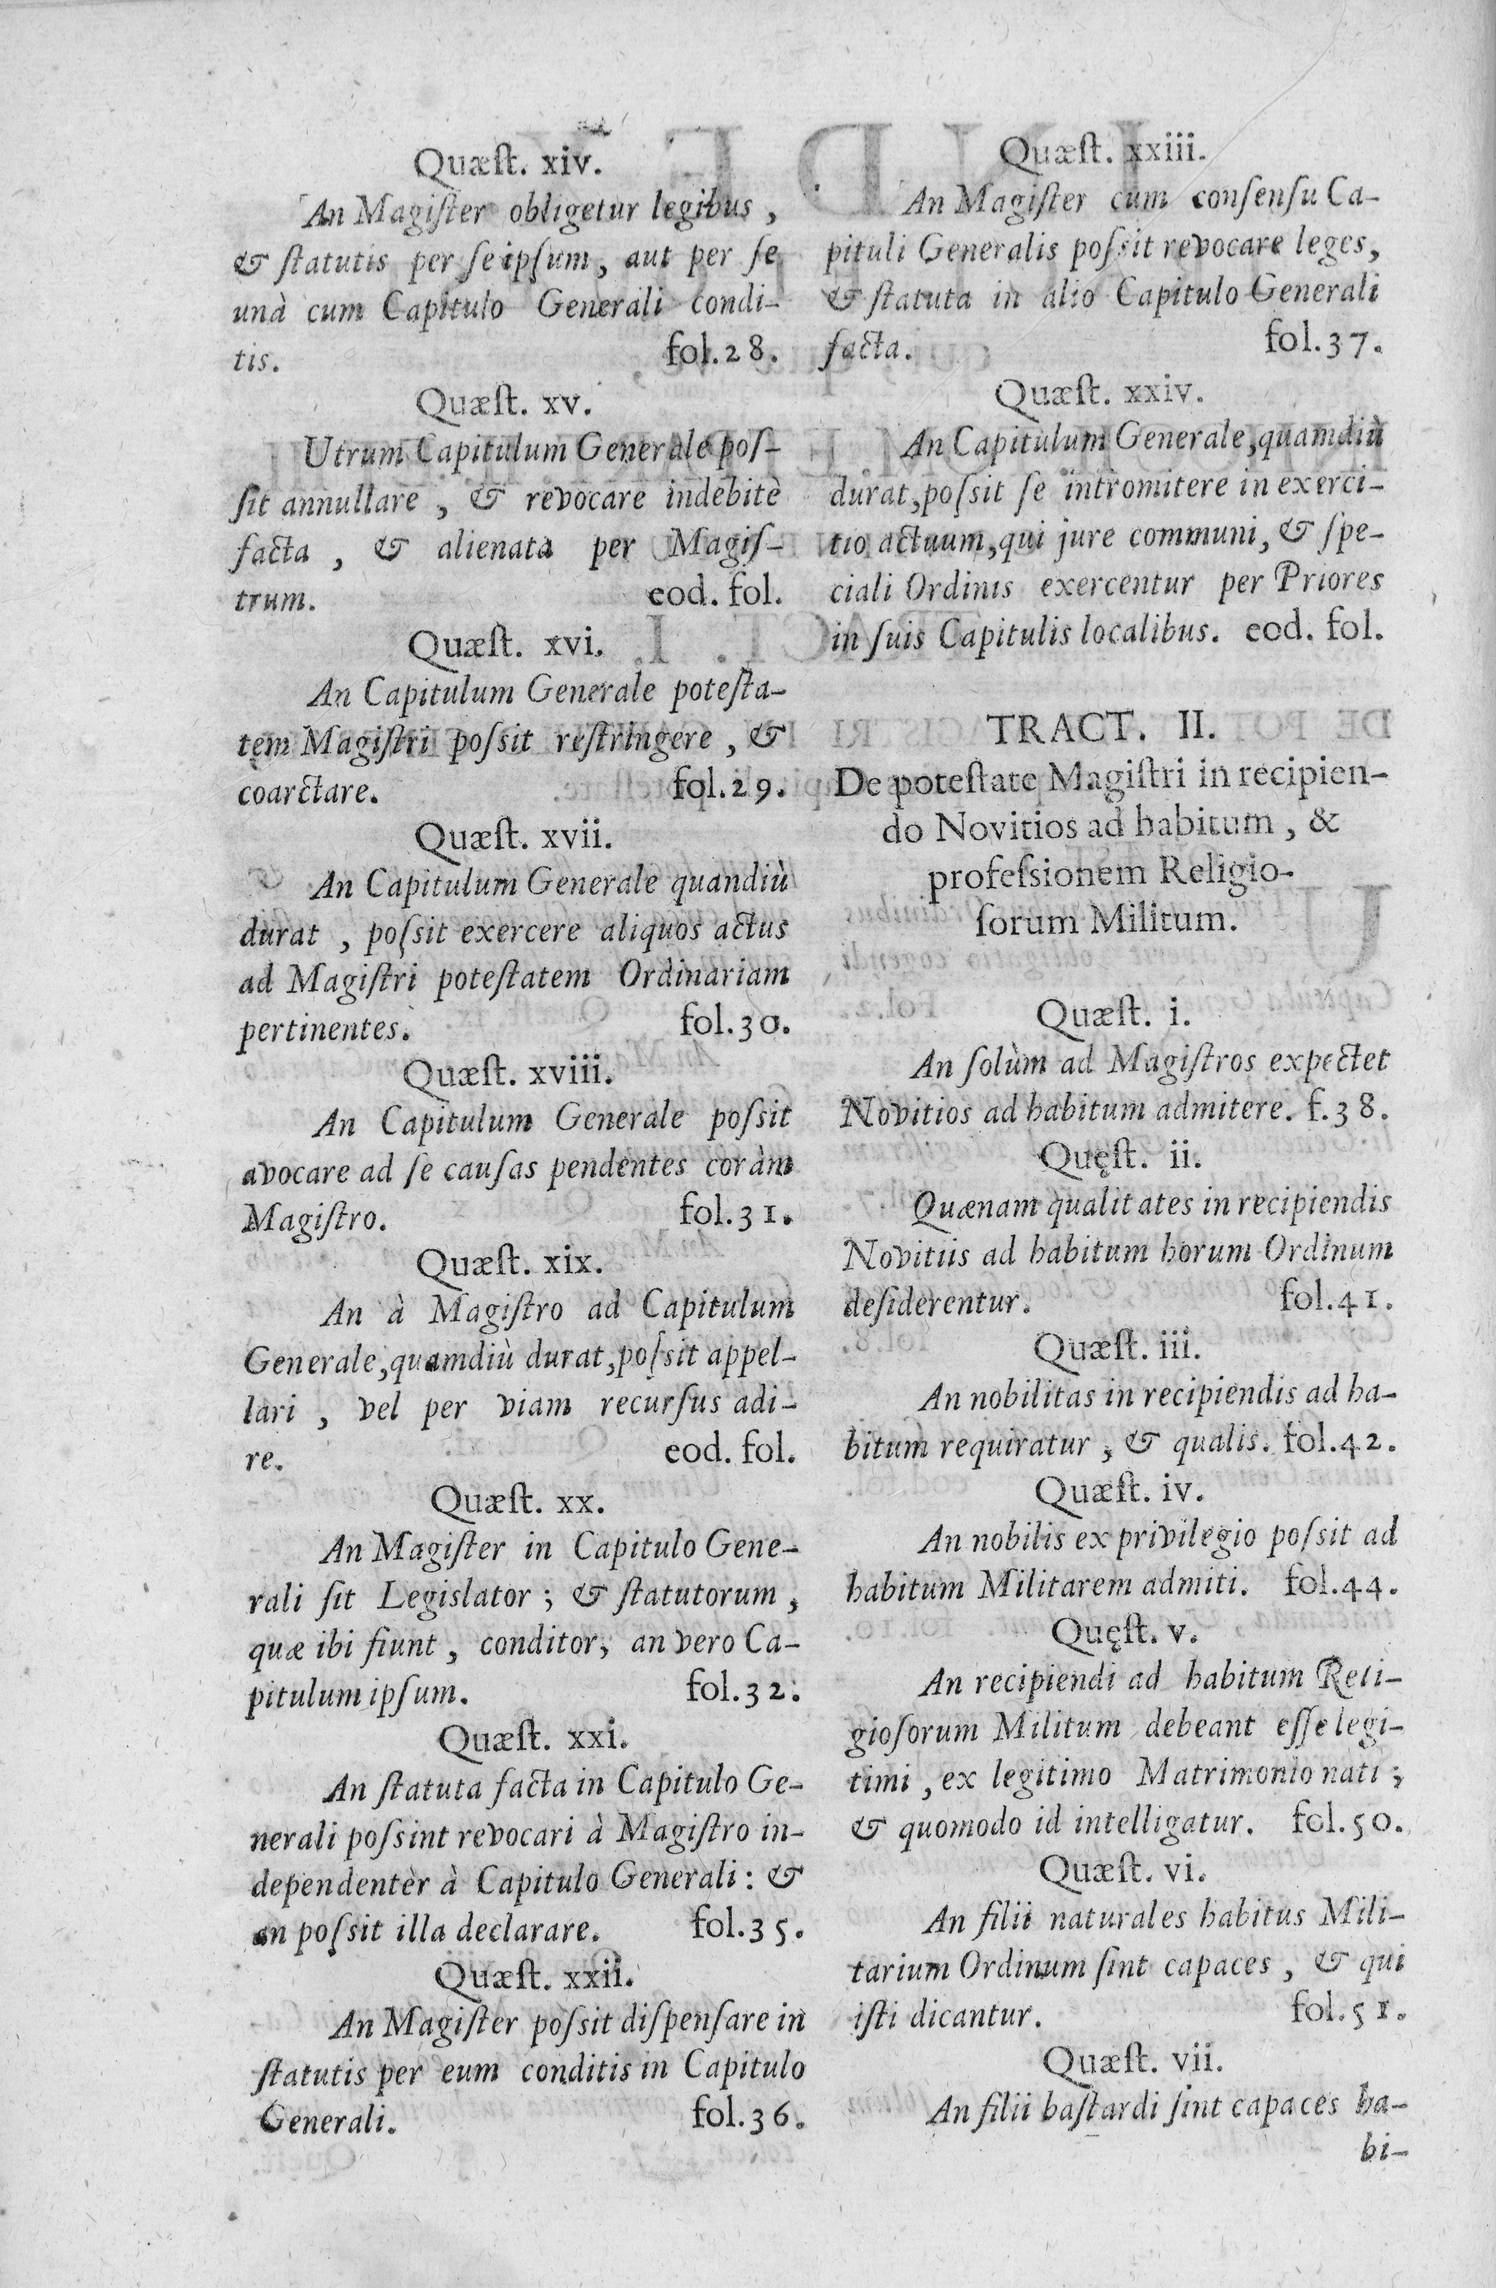 Quæſt. xiv.
An Magiſter obligetur legibus,
& ſtatutis per ſe ipſum, aut per ſe
unà cum Capitulo Generali condi-
tis. fol.28.
Quæſt. xv.
Utrum Capitulum Generale poſ-
ſit annullare, & revocare indebitè
facta, & alienata per Magiſ-
trum. eod. fol.
Quæſt. xvi.
An Capitulum Generale poteſta-
tem Magiſtri poſsit reſtringere, &
coarctare. fol.29.
Quæſt. xvii.
An Capitulum Generale quandiù
durat, poſsit exercere aliquos actus
ad Magiſtri poteſtatem Ordinariam
pertinentes. fol.30.
Quæſt. xviii.
An Capitulum Generale poſsit
avocare ad ſe cauſas pendentes coràm
Magiſtro. fol.31.
Quæſt. xix.
An à Magiſtro ad Capitulum
Generale, quamdiù durat, poſsit appel-
lari, vel per viam recurſus adi-
re. eod. fol.
Quæſt. xx.
An Magiſter in Capitulo Gene-
rali ſit Legislator; & ſtatutorum,
quæ ibi fiunt, conditor, an vero Ca-
pitulum ipſum. fol.32.
Quæſt. xxi.
An ſtatuta facta in Capitulo Ge-
nerali poſsint revocari à Magiſtro in-
dependentèr à Capitulo Generali: &
an poſsit illa declarare. fol.35.
Quæſt. xxii.
An Magiſter poſsit diſpenſare in
ſtatutis per eum conditis in Capitulo
Generali. fol.36.
Quæſt. xxiii.
An Magiſter cum conſenſu Ca-
pituli Generalis poſsit revocare leges,
& ſtatuta in alio Capitulo Generali
facta. fol.37.
Quæſt. xxiv.
An Capitulum Generale, quamdiù
durat, poſsit ſe intromitere in exerci-
tio actuum, qui jure communi, & ſpe-
ciali Ordinis exercentur per Priores
in ſuis Capitulis localibus. eod. fol.
TRACT. II.
De poteſtate Magiſtri in recipien-
do Novitios ad habitum, &
profeſsionem Religio-
ſorum Militum.
Quæſt. i.
An ſolùm ad Magiſtros expectet
Novitios ad habitum admitere. f.38.
Quęſt. ii.
Quænam qualitates in recipiendis
Novitiis ad habitum horum Ordinum
deſiderentur. fol.41.
Quæſt. iii.
An nobilitas in recipiendis ad ha-
bitum requiratur, & qualis. fol.42.
Quæſt. iv.
An nobilis ex privilegio poſsit ad
habitum Militarem admiti. fol.44.
Quęſt. v.
An recipiendi ad habitum Reli-
gioſorum Militum debeant eſſe legi-
timi, ex legitimo Matrimonio nati;
& quomodo id intelligatur. fol.50.
Quæſt. vi.
An filii naturales habitus Mili-
tarium Ordinum ſint capaces, & qui
iſti dicantur. fol.51.
Quæſt. vii.
An filii baſtardi ſint capaces ha-
bi-